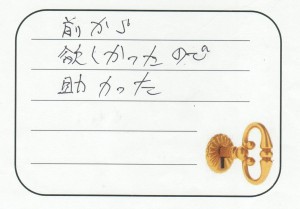 前から
欲しかったので
助かった